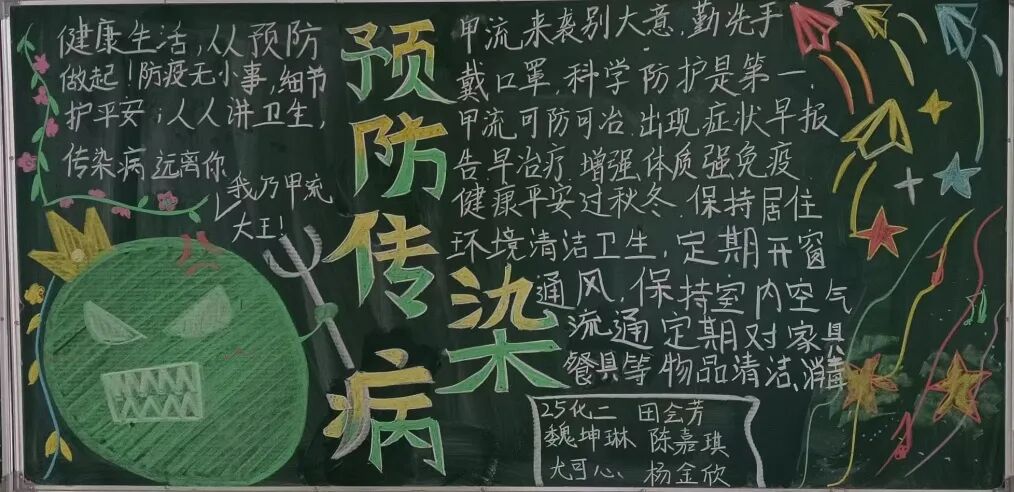 健康生活,从预防
做起!防疫无小事,细节
护平安;人人讲卫生,
传染病远离你
我乃甲流
大王!
预防传染病
甲流来袭别大意,勤洗手
戴口罩,科学防护是第一,
甲流可防可冶.出现症状早报
告.早治疗.增强体质强免疫.
健康平安过秋冬.保持居住
环境清洁卫生,定期开窗
通风,保持室内空气
流通定期对家具
餐具等物品清洁、消毒
25化二 田会芳
魏坤琳 陈嘉琪
尤可心 杨金欣